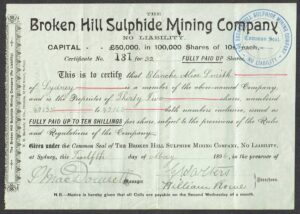 THE
Broken Hill Sulphide Mining Company
NO LIABILITY.
CAPITAL - £50,000, in 100,000 Shares of 10s. each,
Certificate No. 131 for 32 FULLY PAID UP Shares
This is to certify that Blanche Alice Smith
of Sydney is a member of the above-named Company,
and is the Proprietor of Thirty Two Shares, numbered
with number inclusive, issued as
FULLY PAID UP TO TEN SHILLINGS per share, subject to the provisions of the Rules
and Regulations of the Company.
Given under the Common Seal of THE BROKEN HILL SULPHIDE MINING COMPANY, NO LIABILITY,
at Sydney, this Twelfth day of May 189
William Rowe
N.B.—Notice is hereby given that all Calls are payable on the Second Wednesday of a month.
SULPHIDE MINING COMPANY
Common Seal
NO LIABILITY
The Broken Hill Sulphide Mining Company (No Liability).